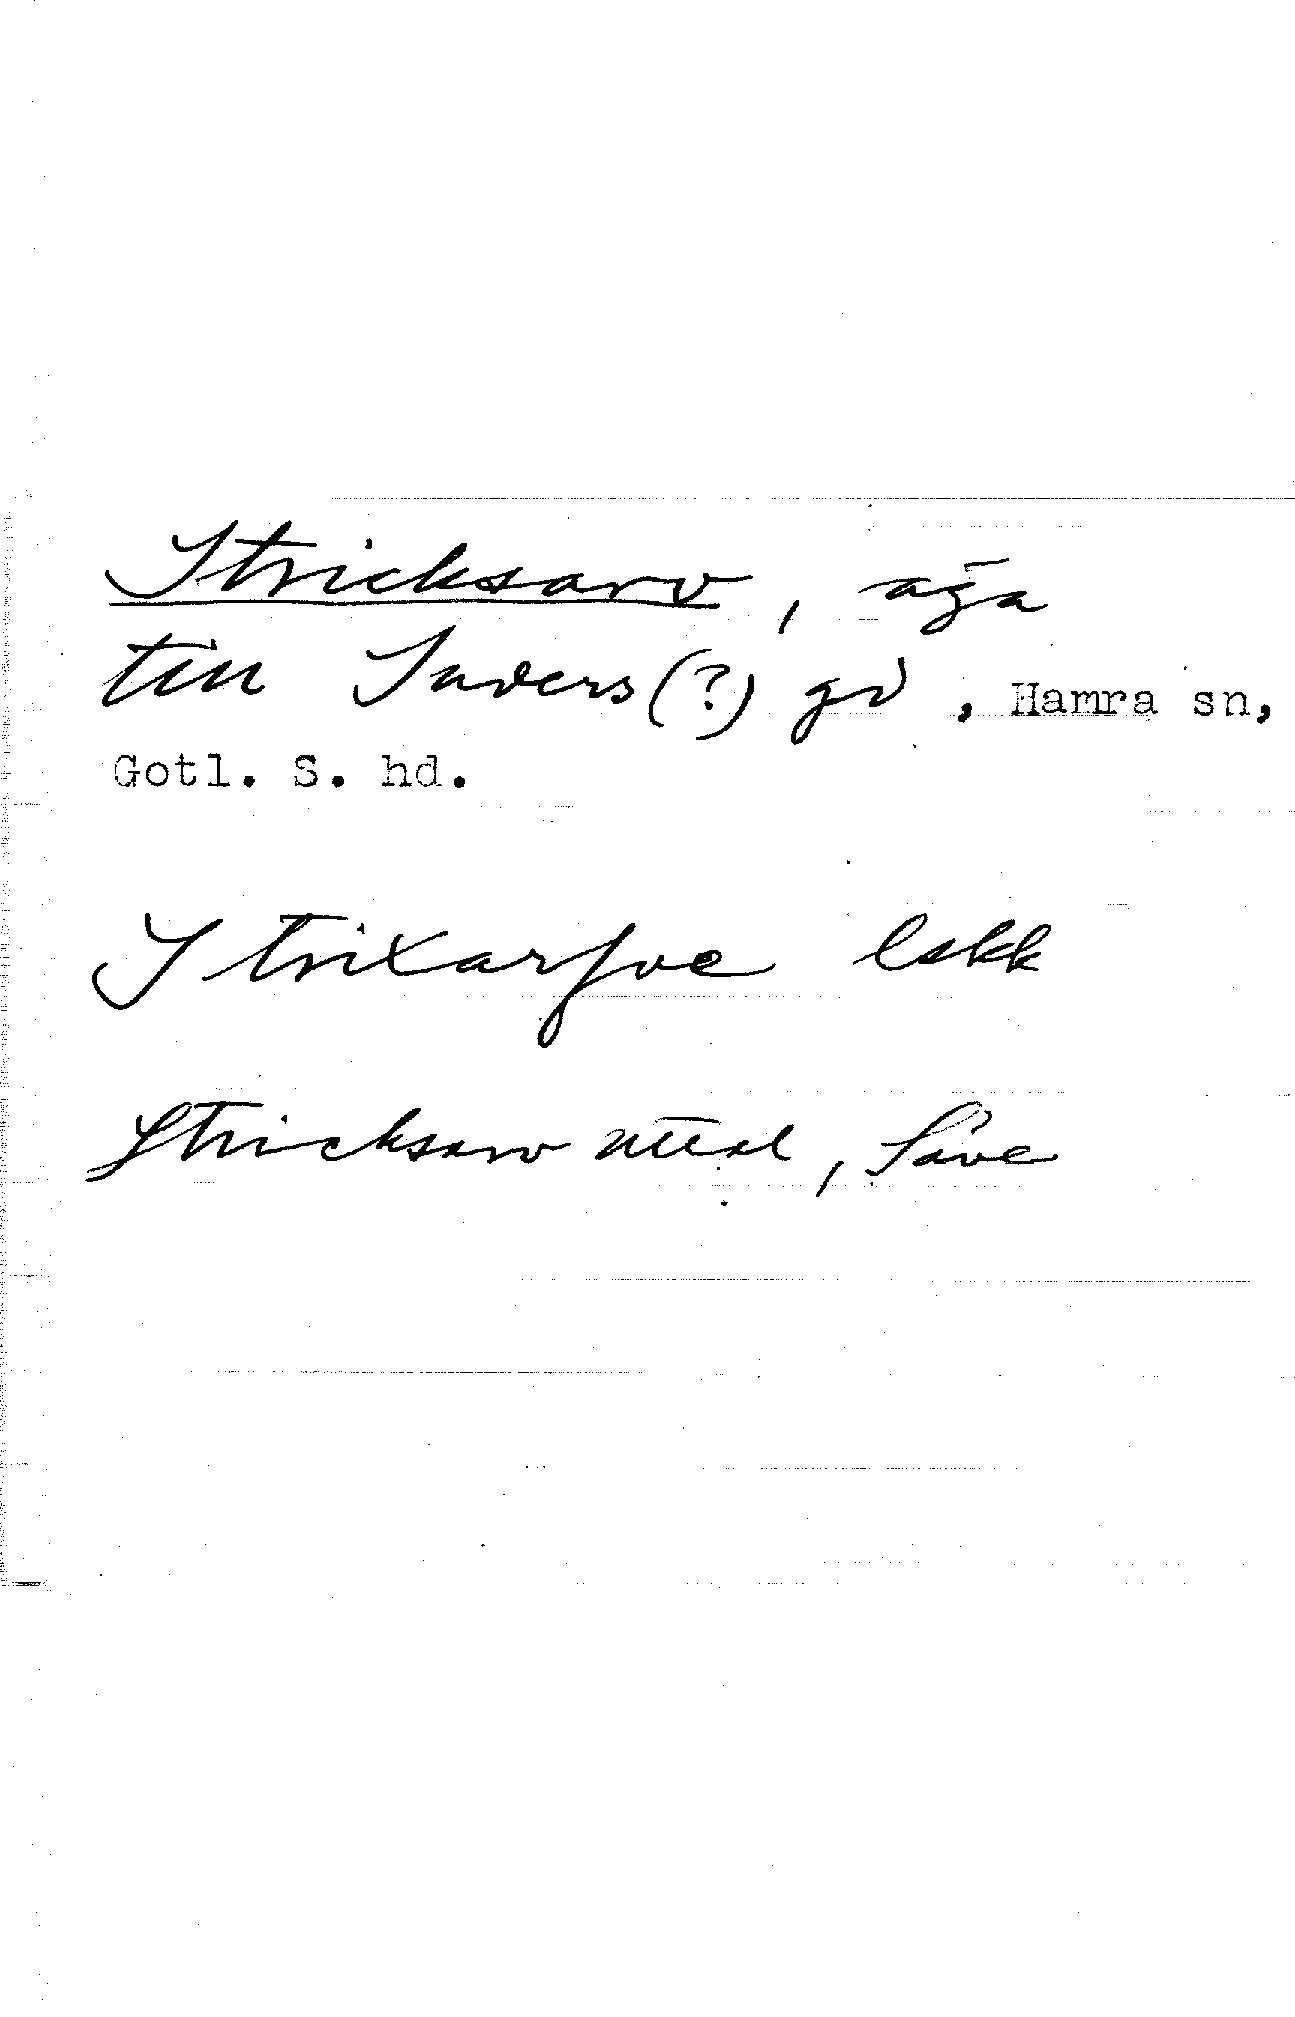 Stricksarv, äga
till Suders(?) gd, Hamra sn,
Gotl. S. hd.
Strixarfve lskk
Stricksarv uttal, Säve